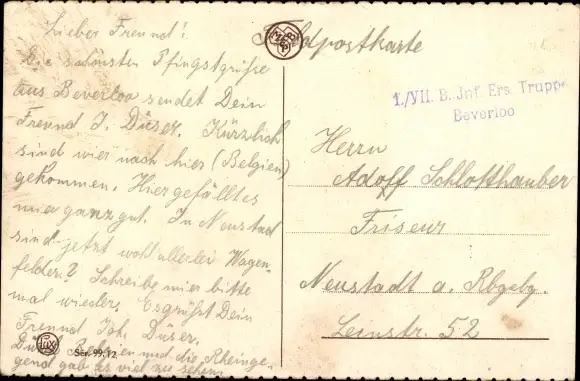 Lieber Freund!
Die schönsten Pfingstgrüße
aus Beverloo sendet Dein
Freund J. Düser. Kürzlich
sind wier nach hier (Belgien)
gekommen. Hier gefällt es
mier ganz gut. In Neustad
sind jetzt wohl allerlei Wagen-
felder? Schreibe mier bitte
mal wieder. Es grüßt Dein
Freund Joh. Düser.
Durch Belgien und die Rheinge-
gend gab es viel zu sehen.
Ser. 99,12
Feldpostkarte
1./VII. B. Inf. Ers. Truppe
Beverloo
Herrn
Adolf Schlotthauber
Friseur
Neustadt a. Rbgebg.
Leinstr. 52